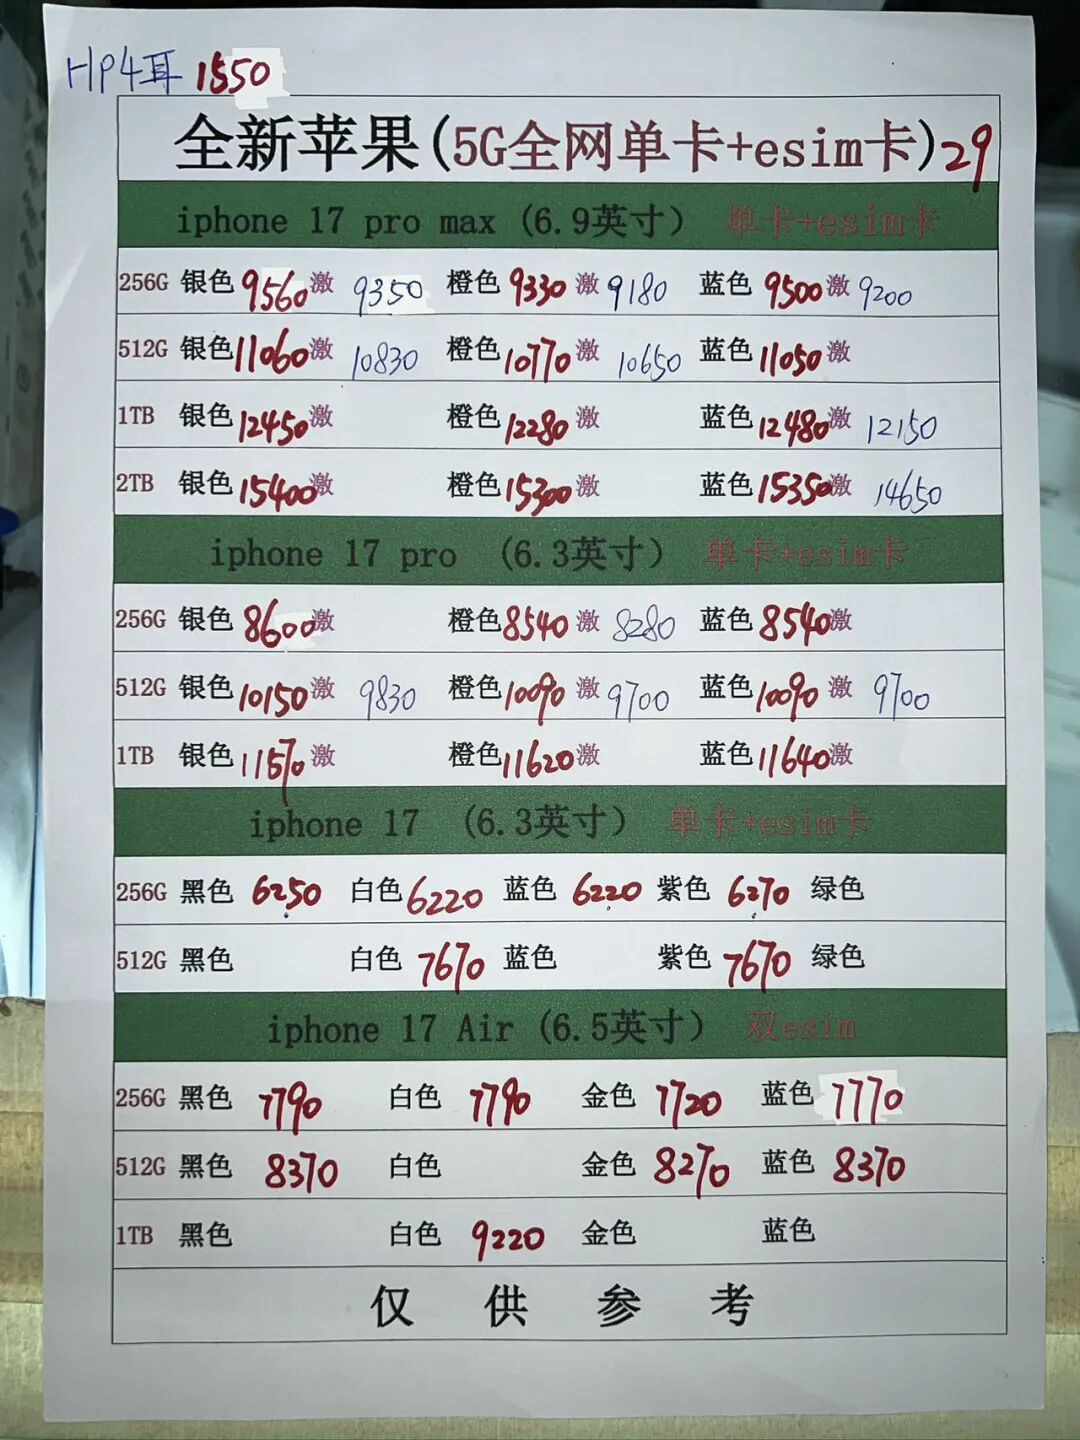 HP4耳 1550
全新苹果(5G全网单卡+esim卡)29
iphone 17 pro max (6.9英寸) 单卡+esim卡
256G 银色 9560 激 9350 橙色 9330 激 9180 蓝色 9500 激 9200
512G 银色 11060 激 10830 橙色 10770 激 10650 蓝色 11050 激
1TB 银色 12450 激 橙色 12280 激 蓝色 12480 激 12150
2TB 银色 15400 激 橙色 15300 激 蓝色 15350 激 14650
iphone 17 pro (6.3英寸) 单卡+esim卡
256G 银色 8600 激 橙色 8540 激 8280 蓝色 8540 激
512G 银色 10150 激 9830 橙色 10090 激 9700 蓝色 10090 激 9700
1TB 银色 11570 激 橙色 11620 激 蓝色 11640 激
iphone 17 (6.3英寸) 单卡+esim卡
256G 黑色 6250 白色 6220 蓝色 6220 紫色 6270 绿色
512G 黑色 白色 7670 蓝色 紫色 7670 绿色
iphone 17 Air (6.5英寸) 双esim
256G 黑色 7790 白色 7790 金色 7720 蓝色 7770
512G 黑色 8370 白色 金色 8270 蓝色 8370
1TB 黑色 白色 9220 金色 蓝色
仅供参考